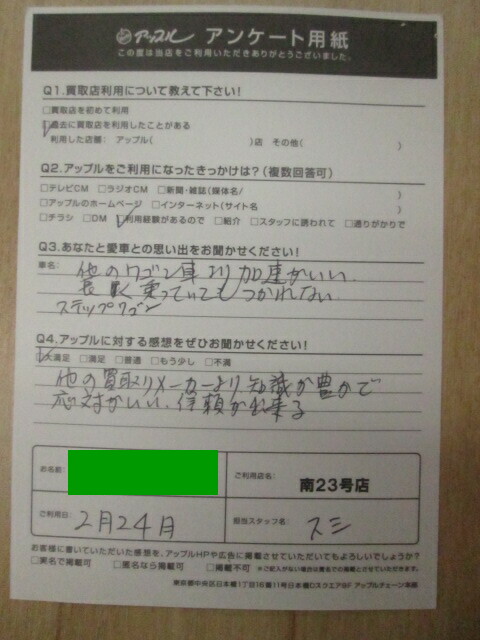 アップル アンケート用紙
この度は当店をご利用いただきありがとうございました。
Q1.買取店利用について教えて下さい!
□買取店を初めて利用
□過去に買取店を利用したことがある
利用した店舗: アップル( )店 その他( )
Q2.アップルをご利用になったきっかけは?(複数回答可)
□テレビCM □ラジオCM □新聞・雑誌(媒体名/ )
□アップルのホームページ □インターネット(サイト名 )
□チラシ □DM □利用経験があるので □紹介 □スタッフに誘われて □通りがかりで
Q3.あなたと愛車との思い出をお聞かせください!
車名:
他のワゴン車より加速がいい、
長く乗っていてもつかれない
ステップワゴン
Q4.アップルに対する感想をぜひお聞かせください!
□大満足 □満足 □普通 □もう少し □不満
他の買取りメーカーより知識が豊かで
応対がいい、信頼が出来る
お名前 ご利用店名:
南23号店
ご利用日: 2月24日 担当スタッフ名:
お客様に書いていただいた感想を、アップルHPや広告に掲載させていただいてもよろしいでしょうか?
□実名で掲載可 □匿名なら掲載可 □掲載不可 ※ご記入がない場合は匿名での掲載とさせていただきます。
東京都中央区日本橋1丁目16番11号日本橋Dスクエア8F アップルチェーン本部